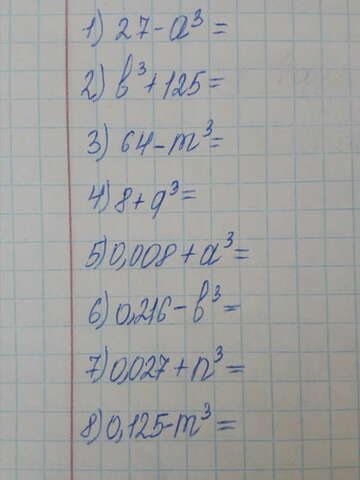 1) 27 - a³ =
2) b³ + 125 =
3) 64 - m³ =
4) 8 + q³ =
5) 0,008 + a³ =
6) 0,216 - b³ =
7) 0,027 + n³ =
8) 0,125 - m³ =